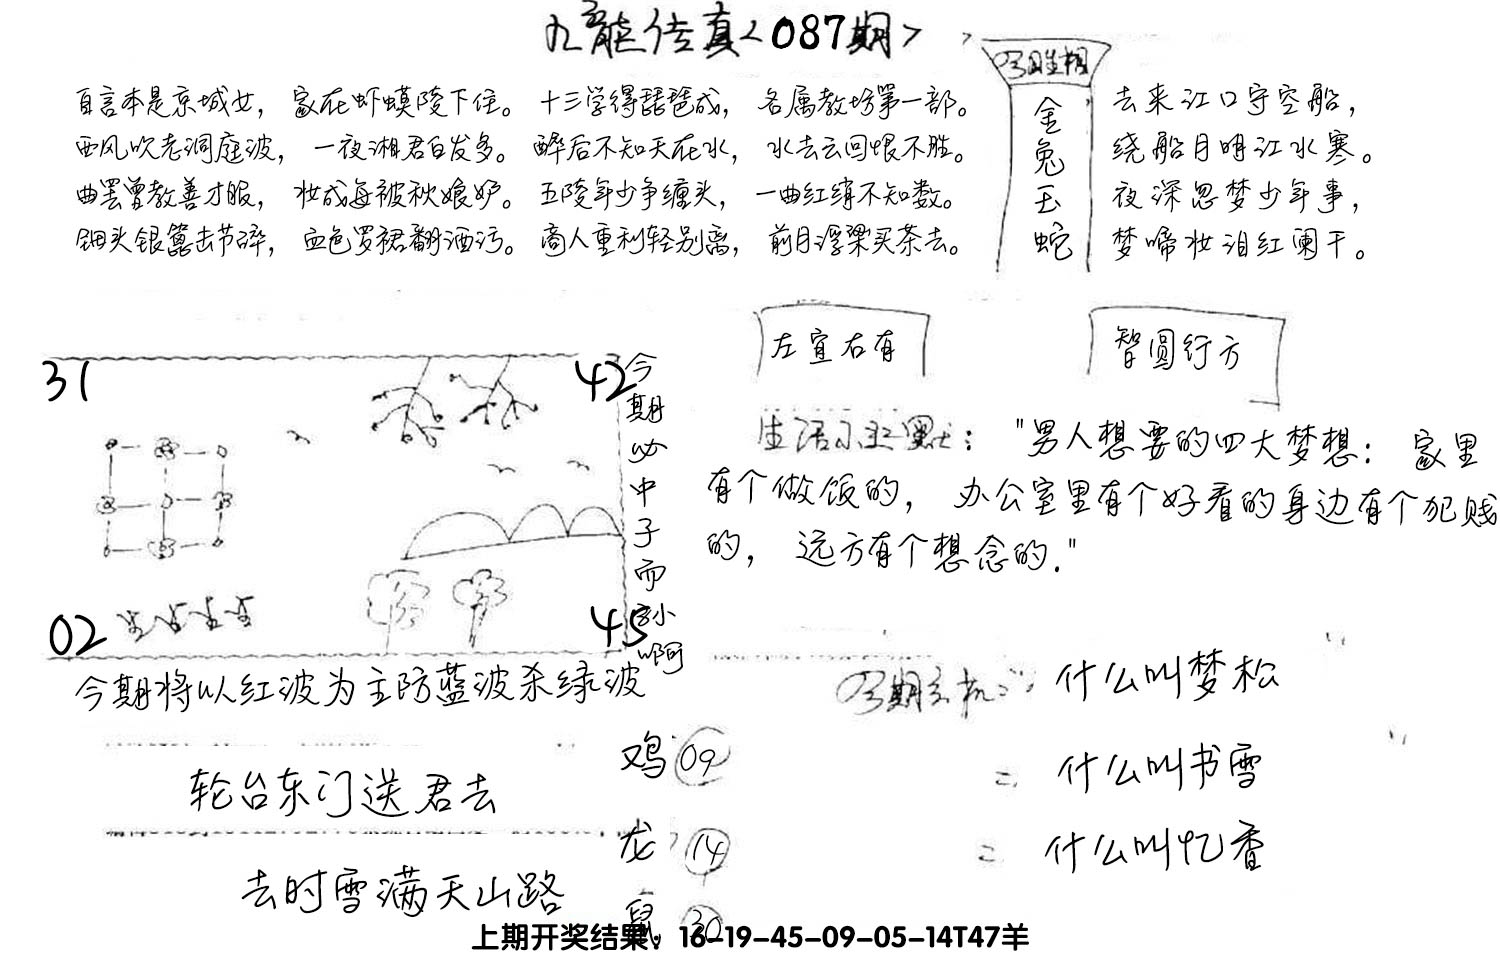 九龙传真<087期>
自言本是京城女，家在虾蟆陵下住。十三学得琵琶成，名属教坊第一部。
西风吹老洞庭波，一夜湘君白发多。醉后不知天在水，水去云回恨不胜。
曲罢曾教善才服，妆成每被秋娘妒。五陵年少争缠头，一曲红绡不知数。
钿头银篦击节碎，血色罗裙翻酒污。商人重利轻别离，前月浮梁买茶去。
金兔玉蛇
去来江口守空船，
绕船月明江水寒。
夜深忽梦少年事，
梦啼妆泪红阑干。
左宜右有
智圆行方
31
42
02
45
今期必中子而
啊
生活小幽默："男人想要的四大梦想：家里
有个做饭的，办公室里有个好看的身边有个犯贱
的，远方有个想念的."
今期将以红波为主防蓝波杀绿波
轮台东门送君去
去时雪满天山路
鸡 09
龙 14
鼠 30
什么叫梦松
二 什么叫书雪
二 什么叫忆香
上期开奖结果：16-19-45-09-05-14T47羊